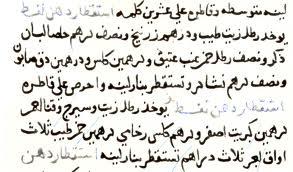 لينه متوسطه وقاطره على عشرين كلمه استقطار دهن نفط
يوخد رطل زيت طيب ودرهم زرنيخ ونصف لرهم حصالبان
ذكر ونصف رطل خمر عنب عتيق ولرهمين كلس ودرهمين دق صابون
ونصف لرهم نشادر وتستقطر بنار لينه واحرص على قاطره
استقطار دهن نفط يوخد رطل زيت وسيرج وقنا لعمر
لرهمين كبريت اصفر ولرهم كلس رخامي لرهمين خمر طيب ثلاث
اواق لعر ثلاث دراهم تستقطر بنار لينه استقطار دهن